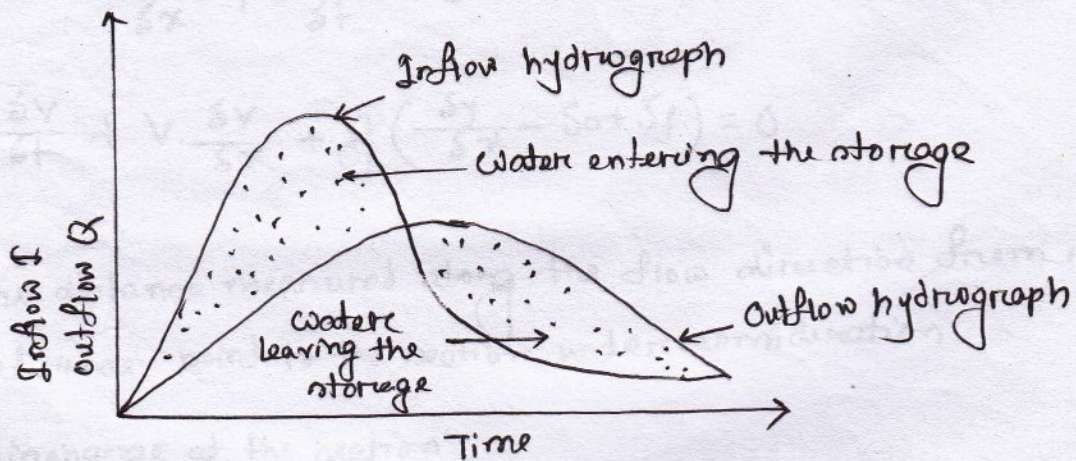 Inflow hydrograph
Water entering the storage
Inflow I
Outflow Q
Water
leaving the
storage
Outflow hydrograph
Time